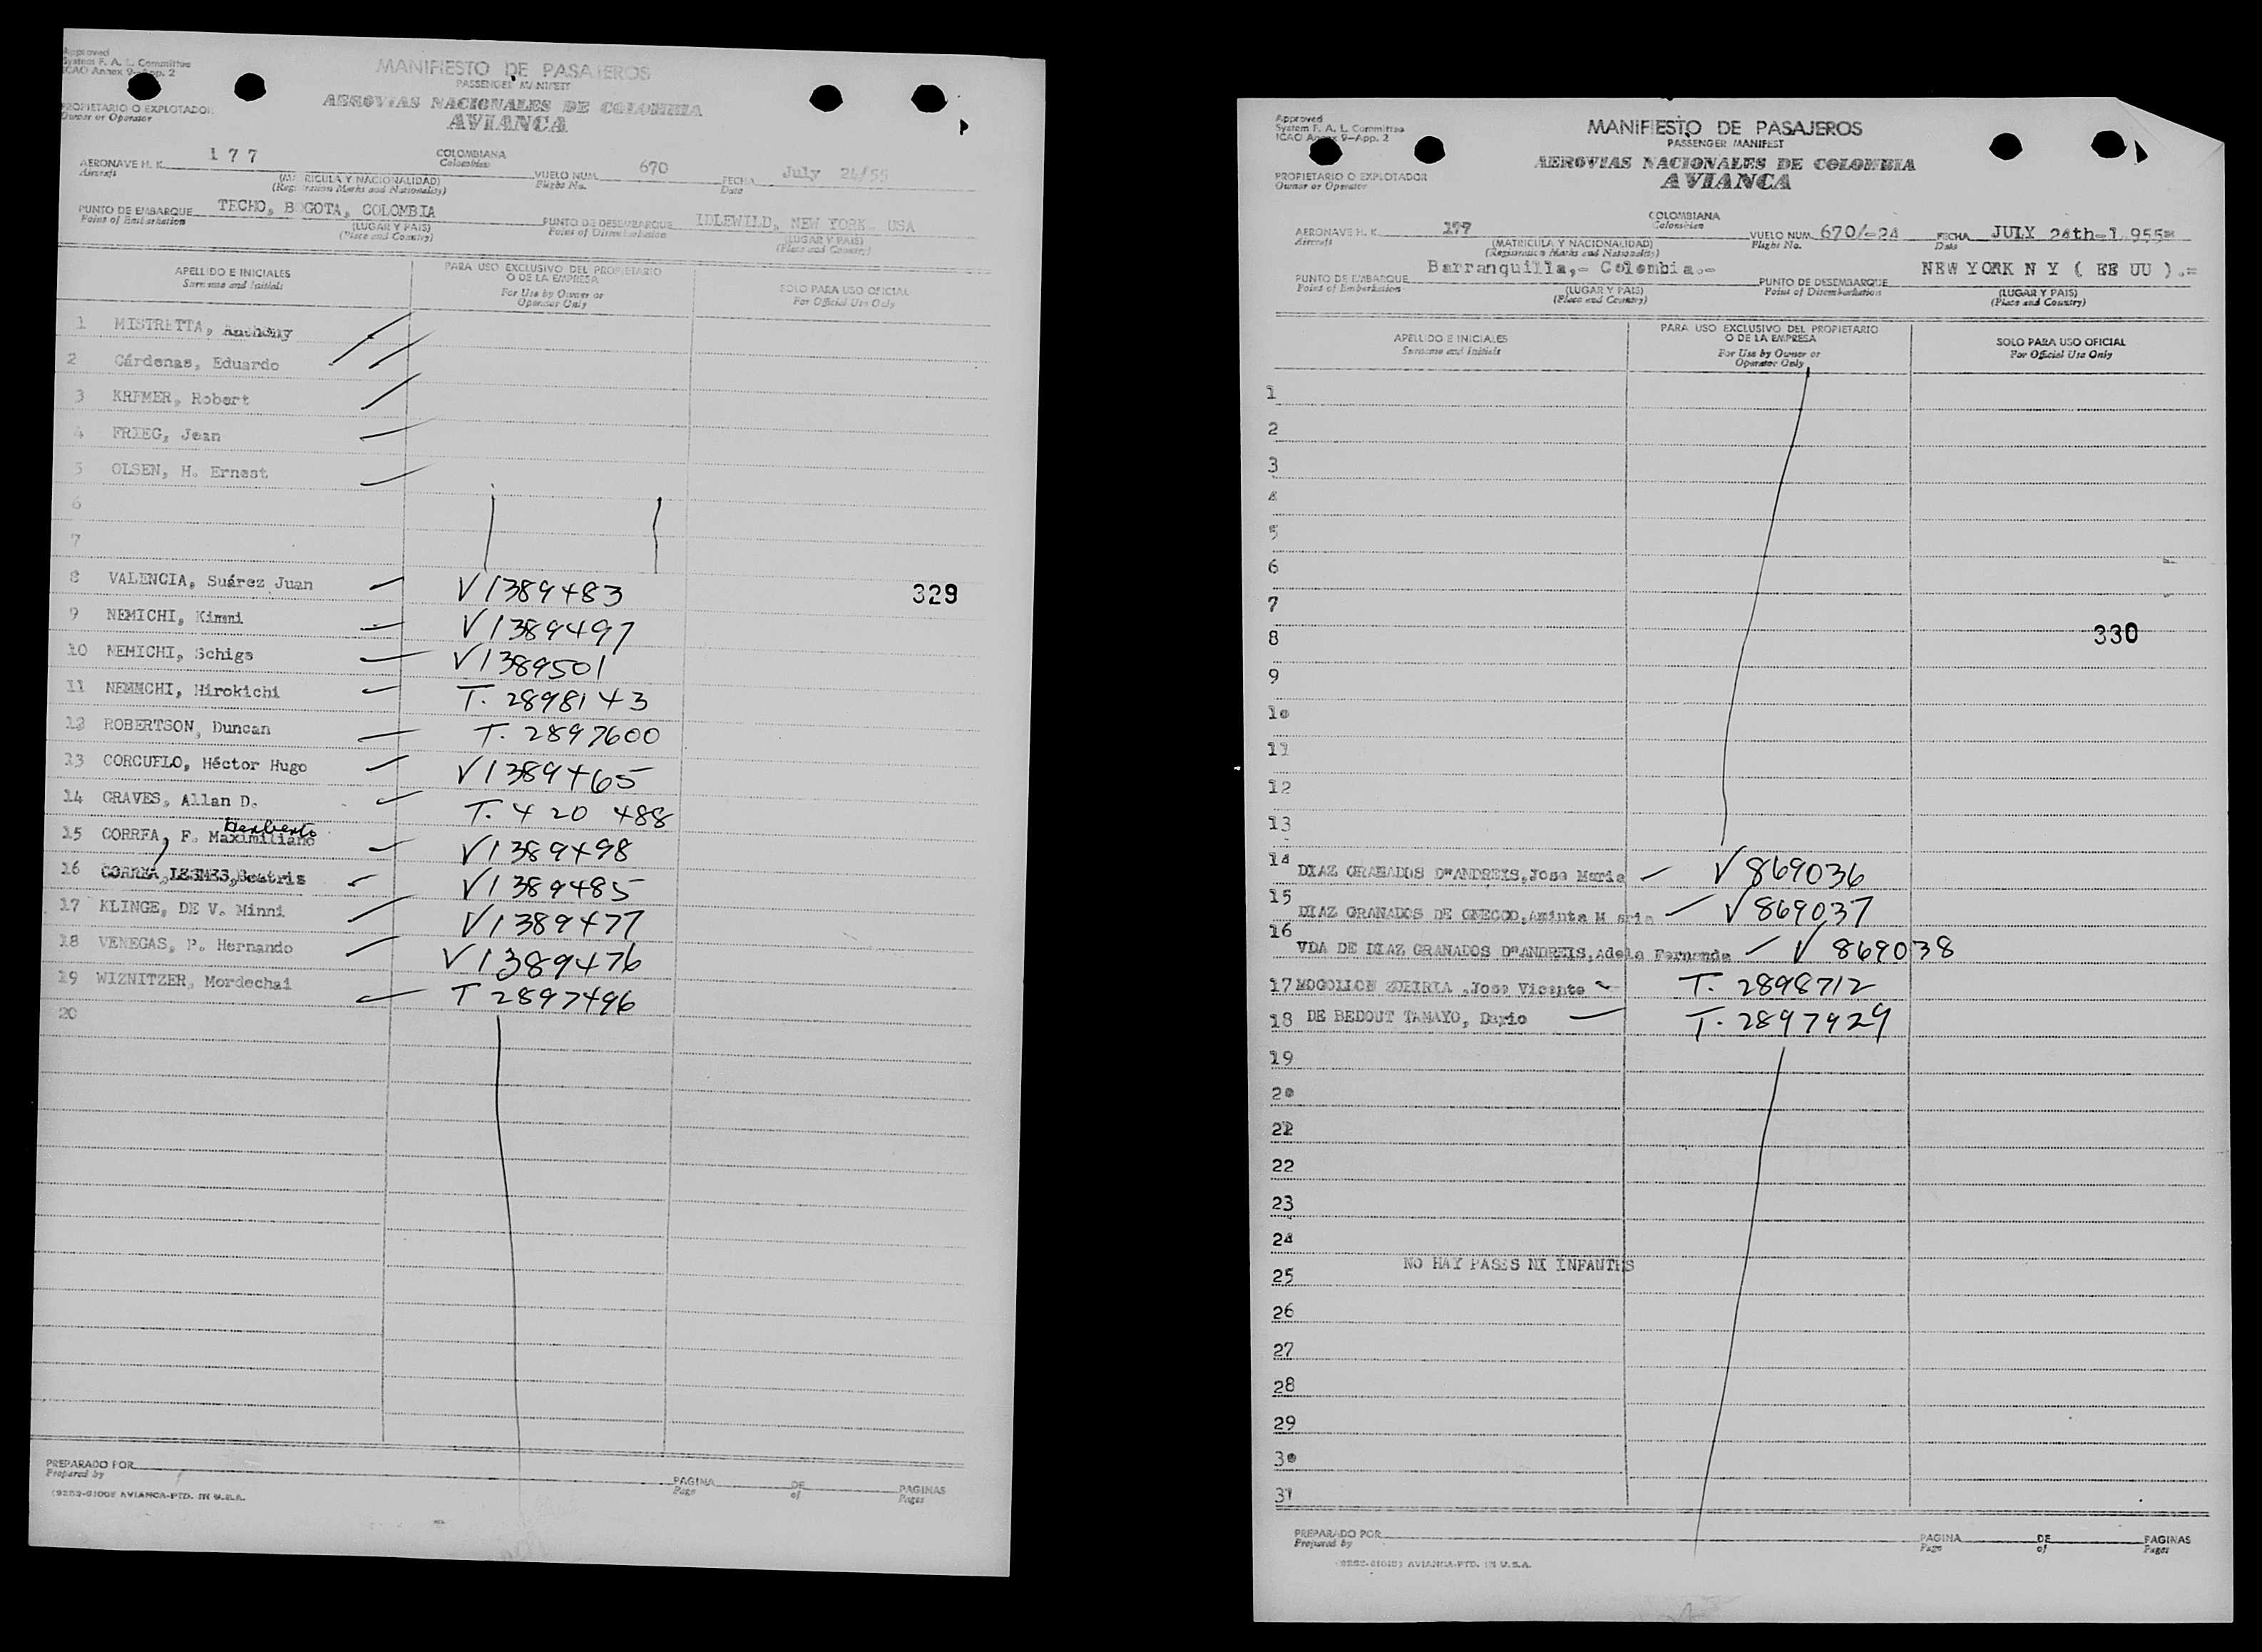 Approved
System F. A. L. Committee
ICAO Annex 9-App. 2
MANIFIESTO DE PASAJEROS
PASSENGER MANIFEST
AEROVIAS NACIONALES DE COLOMBIA
AVIANCA
PROPIETARIO O EXPLOTADOR
Owner or Operator
AERONAVE H. K. 177 COLOMBIANA VUELO NUM. 670 FECHA July 24/55
Aircraft Colombian Flight No. Date
(MATRICULA Y NACIONALIDAD)
(Registration Marks and Nationality)
PUNTO DE EMBARQUE TECHO, BOGOTA, COLOMBIA PUNTO DE DESEMBARQUE IDLEWILD, NEW YORK. USA
Point of Embarkation (LUGAR Y PAIS) Point of Disembarkation (LUGAR Y PAIS)
(Place and Country) (Place and Country)
APELLIDO E INICIALES PARA USO EXCLUSIVO DEL PROPIETARIO O DE LA EMPRESA SOLO PARA USO OFICIAL
Surname and Initials For Use by Owner or Operator Only For Official Use Only
1 MISTRETTA, Anthony
2 Cárdenas, Eduardo
3 KREMER, Robert
4 FRIEG, Jean
5 OLSEN, H. Ernest
6
7
8 VALENCIA, Suárez Juan V1389483 329
9 NEMICHI, Kimni V1389497
10 NEMICHI, Schigs V1389501
11 NEMICHI, Hirokichi T. 2898143
12 ROBERTSON, Duncan T. 2897600
13 CORCUELO, Héctor Hugo V1389465
14 GRAVES, Allan D. T. 420 488
Herberto
15 CORREA, F. Maximiliano V1389498
16 CORREA, LESMES, Beatris V1389485
17 KLINGE, DE V. Minni V1389477
18 VENEGAS, P. Hernando V1389476
19 WIZNITZER, Mordechai T 2897496
20
PREPARADO POR PAGINA DE PAGINAS
Prepared by Page of Pages
AVIANCA-PTD. IN U.S.A.
Approved
System F. A. L. Committee
ICAO Annex 9-App. 2
MANIFIESTO DE PASAJEROS
PASSENGER MANIFEST
AEROVIAS NACIONALES DE COLOMBIA
AVIANCA
PROPIETARIO O EXPLOTADOR
Owner or Operator
AERONAVE H. K. 177 COLOMBIANA VUELO NUM. 670/-24 FECHA JULY 24th-1.955=
Aircraft Colombian Flight No. Date
(MATRICULA Y NACIONALIDAD)
(Registration Marks and Nationality)
PUNTO DE EMBARQUE Barranquilla,- Colombia.- PUNTO DE DESEMBARQUE NEW YORK N Y ( EE UU ).=
Point of Embarkation (LUGAR Y PAIS) Point of Disembarkation (LUGAR Y PAIS)
(Place and Country) (Place and Country)
APELLIDO E INICIALES PARA USO EXCLUSIVO DEL PROPIETARIO O DE LA EMPRESA SOLO PARA USO OFICIAL
Surname and Initials For Use by Owner or Operator Only For Official Use Only
1
2
3
4
5
6
7
8 330
9
10
11
12
13
14 DIAZ GRANADOS D"ANDREIS, Jose Maria V869036
15 DIAZ GRANADOS DE GNECCO, Aminta M aria V869037
16 VDA DE DIAZ GRANADOS D"ANDREIS, Adela Fernanda V 869038
17 MOGOLLON ZUBIRIA , Jose Vicente T. 2898712
18 DE BEDOUT TAMAYO, Dario T. 2897929
19
20
21
22
23
24
NO HAY PASES NI INFANTES
25
26
27
28
29
30
31
PREPARADO POR PAGINA DE PAGINAS
Prepared by Page of Pages
AVIANCA-PTD. IN U.S.A.